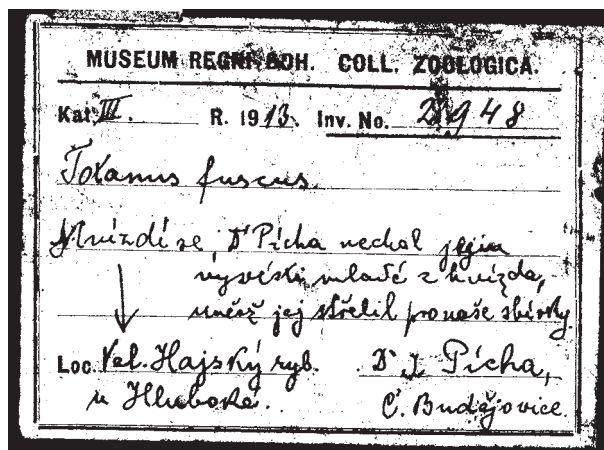 MUSEUM REGNI BOH. COLL. ZOOLOGICA.
Kat. III. R. 1913. Inv. No. 23948
Totanus fuscus.
Hnízdí se, Dr Pícha nechal jejím
vyvésti mladé z hnízda,
načež jej střelil pro naše sbírky.
Loc. Vel. Hajský ryb. Dr J. Pícha,
u Hluboké. Č. Budějovice.